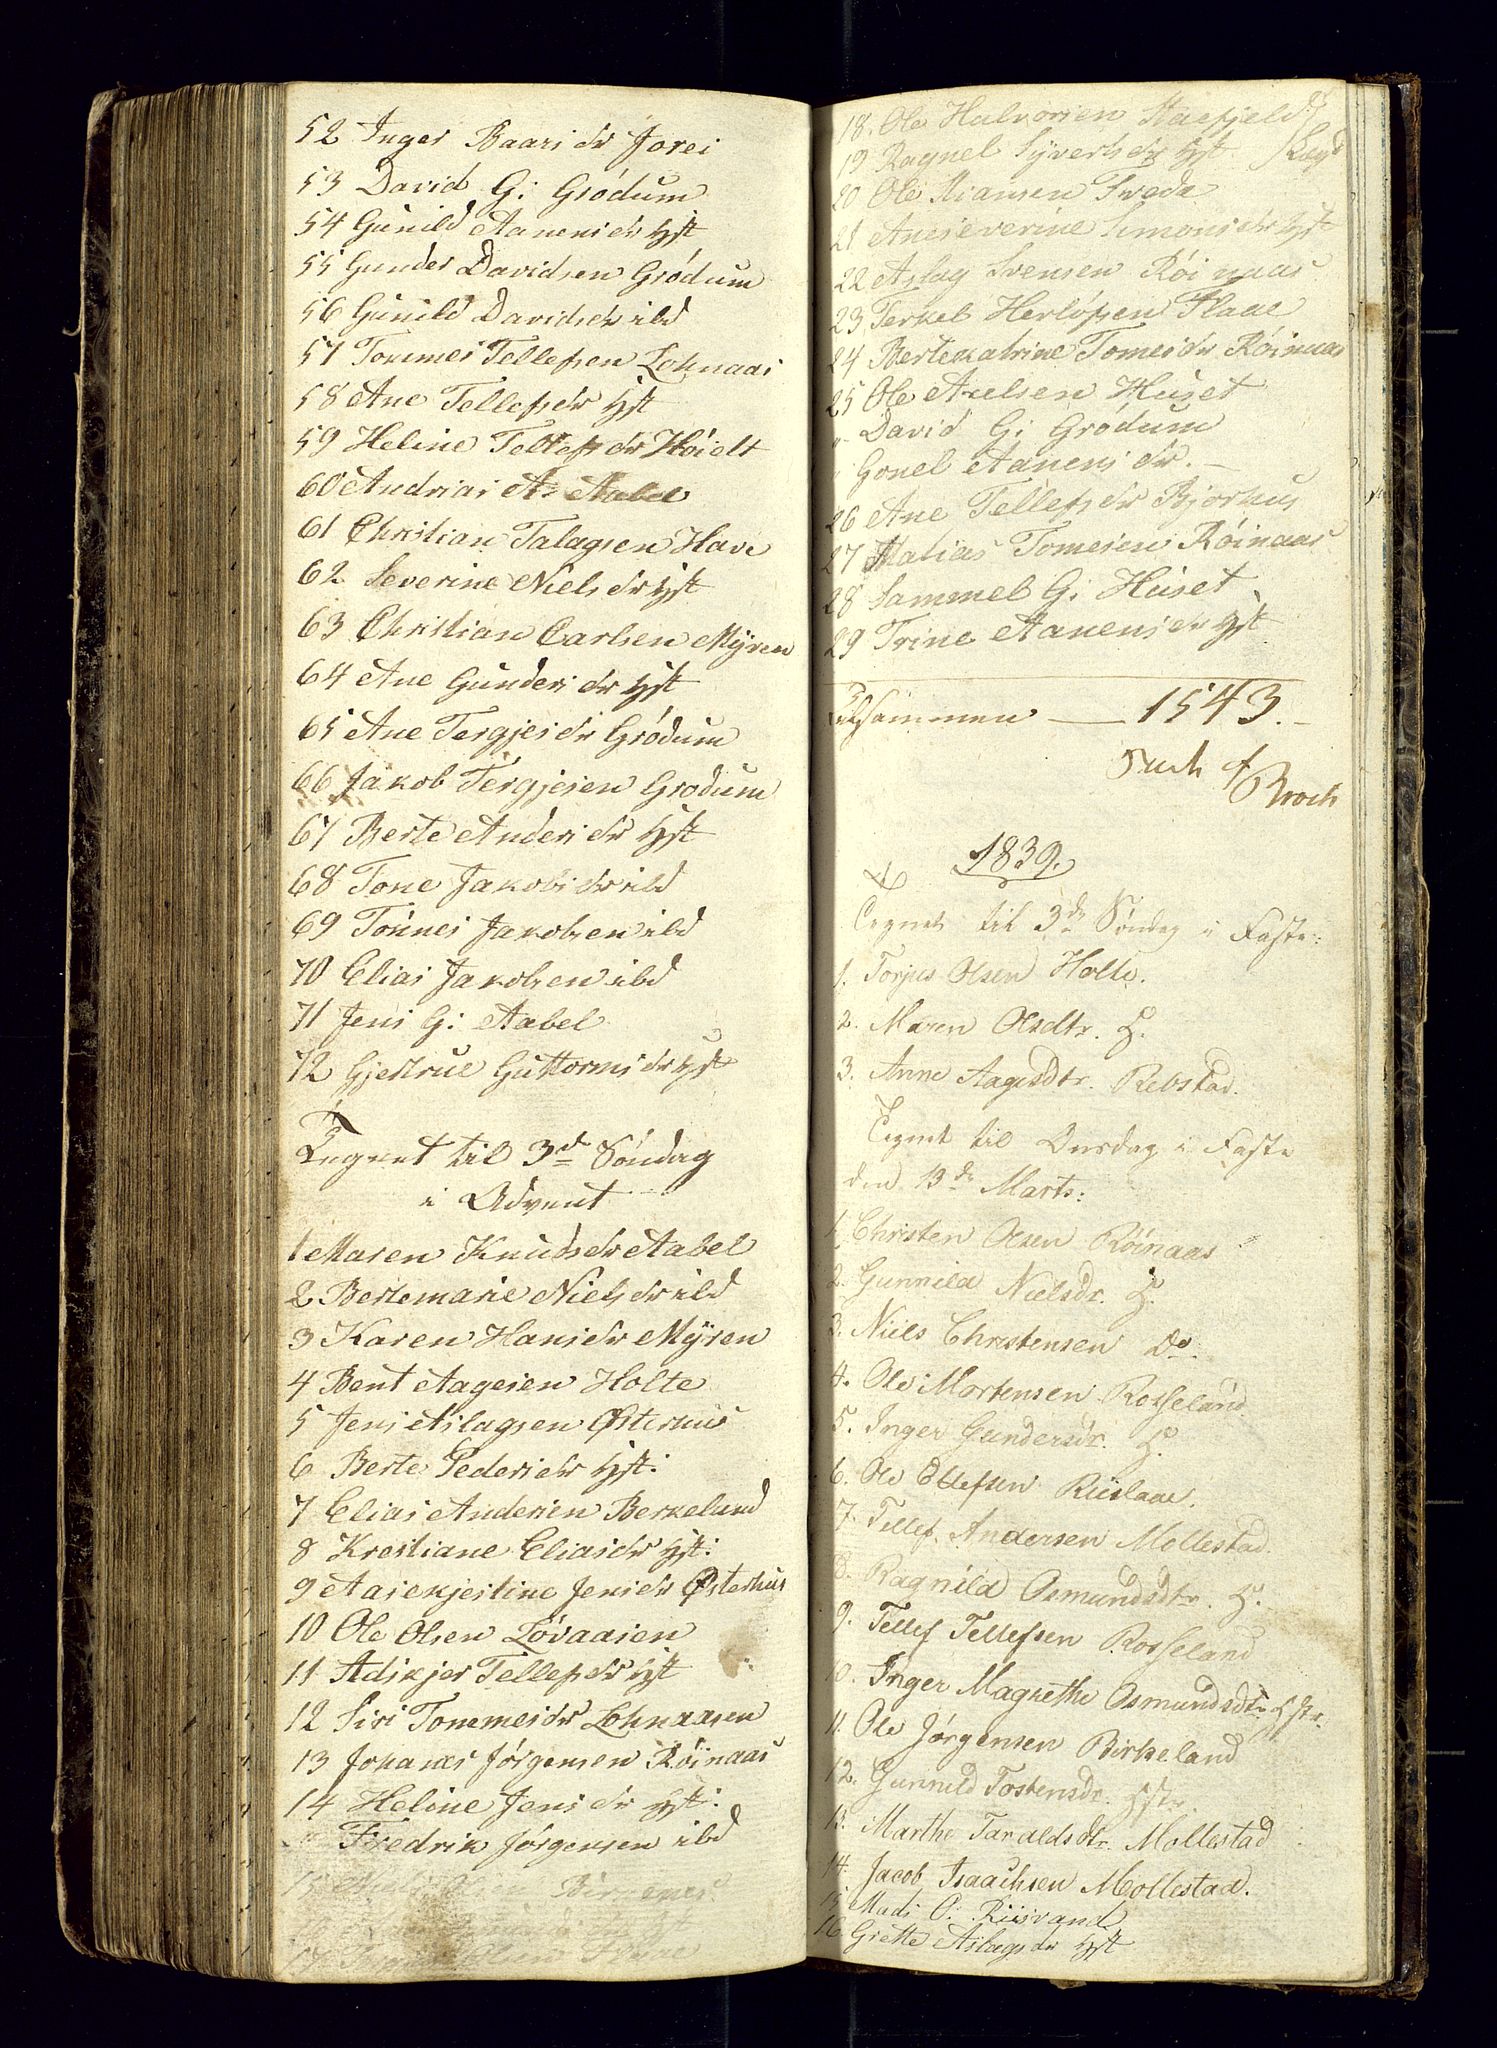 52 Inger Baarsdr Jorei
53 David G: Grödum
54 Gunild Aanensdr Hst
55 Gunder Davidsen Grödum
56 Gunild Davidsdr ibd
57 Tommes Tellefsen Lohnaas
58 Ane Tellefsdr Hst
59 Heline Tellefsdr Höielt
60 Andrias A: Aabel
61 Christian Talagsen Have
62 Severine Nielsdr Hst
63 Christian Carlsen Myren
64 Ane Gundersdr Hst
65 Ane Tergjesdr Grödum
66 Jakob Tergjesen Grodum
67 Berte Andersdr Hst
68 Tone Jakobsdr ibd
69 Tönnes Jakobsen ibd
70 Elias Jakobsen ibd
71 Jens G: Aabel
72 Gjertrue Guttormsdr Hst
Tegnet til 3die Söndag
i Advent
1 Maren Knudsdr Aabel
2 Bertemarie Nielsdr ibd
3 Karen Hansdr Myren
4 Bent Aagesen Holte
5 Jens Aslagsen Østerhus
6 Berte Pedersdr Hst:
7 Elias Andersen Berkelund
8 Krestiane Eliasdr Hst:
9 Aasekjestine Jensdr Østerhus
10 Ole Olsen Lövaasen
11 Adskjer Tellefsdr Hst
12 Siri Tommesdr Lohnaasen
13 Johanes Jörgensen Röinaas
14 Heline Jensdr Hst:
Fredrik Jörgensen ibd
15 Olsen Birkenes
17 Olsen Flaae
18. Ole Halvorsen Stasfjeld
19 Ragnel Syvertsdr Hst
20 Ole Sveda
21 Aneseverine Simonsdr Hst
22 Aslag Svensen Röinaas
23 Terkel Herlöfsen Flaae
24 Bertekatrine Tomesdr Röinaas
25 Ole Axelsen Huset
" David G: Grödum
" Gonel Aanensdr. –
26 Ane Tellefsdr Bjorkus
27 Matias Tomesen Röinaas
28 Sammel G: Huset
29 Trine Aanensdr Hst
Tilsammen — 1543.–
Broch
1839.
Tegnet til 3die Söndag i Faste:
1. Torjus Olsen Holte.
2. Maren Olsdtr. H.
3. Anne Aagesdtr. Rebstad.
Tegnet til Onsdag i Faste
den 13de Marts:
1. Christen Olsen Röinaas
2. Gunnild Nielsdr. H.
3. Niels Christensen Do.
4. Ole Mortensen Rosseland
5. Inger Gundersdr. H.
6. Ole Ellefsen Riislaae.
7. Tellef. Andersen Mollestad.
8. Ragnild Osmundsdtr. H.
9. Tellef Tellefsen Rosseland
10. Inger Magrethe Osmundsdtr. Hstr.
11. Ole Jørgensen Birkeland
12. Gunnild Tostensdr. Hstr.
13. Marthe Taraldsdtr. Mollestad
14. Jacob Isaachsen Mollestad.
15 Mads O: Riisvand
16 Grette Aslagsdr Hst